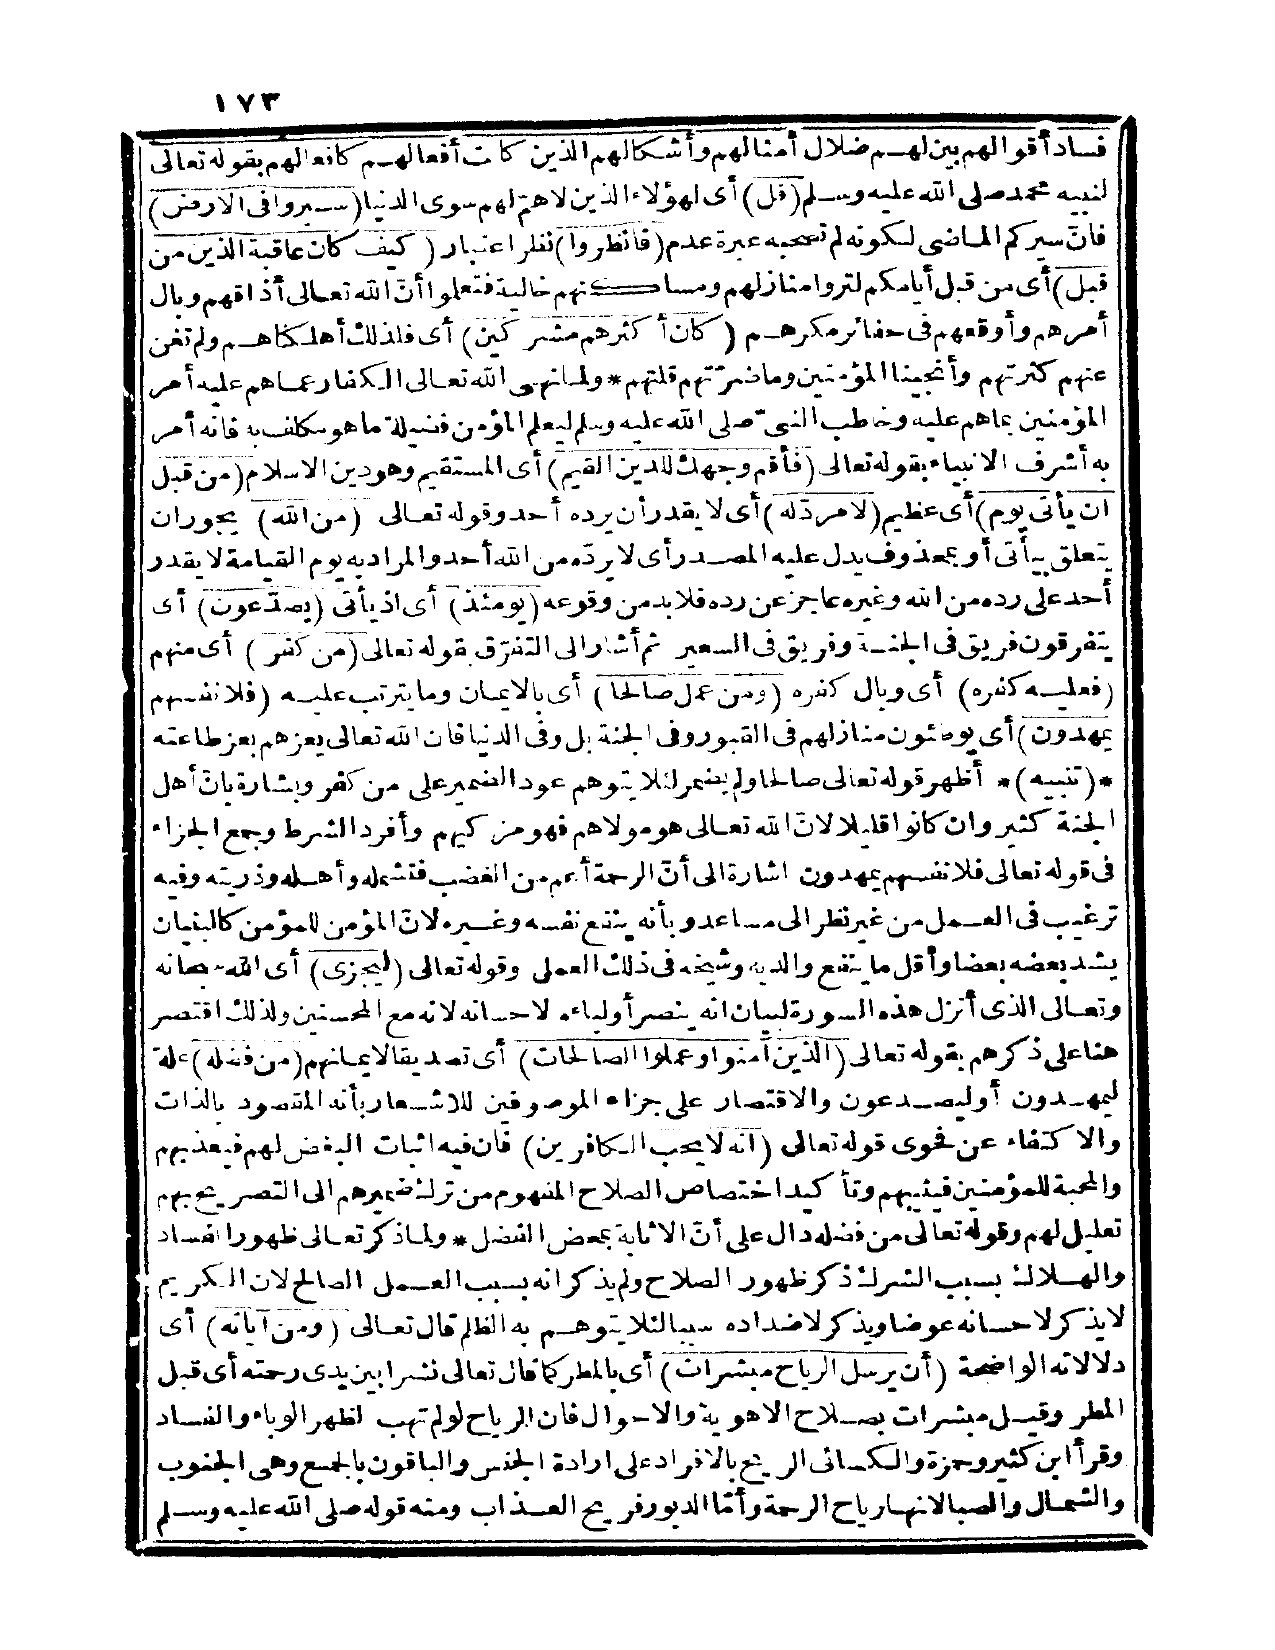 ١٧٣
فساد أقوالهم بين لهم ضلال أمثالهم وأشكالهم الذين كانت أفعالهم كأفعالهم بقوله تعالى
لنبيه محمد صلى الله عليه وسلم (قل) أى لهؤلاء الذين لا همّ لهم سوى الدنيا (سيروا فى الارض)
فانّ سيركم الماضى لكونه لم تصحبه عبرة عدم (فانظروا) نظر اعتبار (كيف كان عاقبة الذين من
قبل) أى من قبل أيامكم لتروا منازلهم ومساكنهم خالية فتعلموا أنّ الله تعالى أذاقهم وبال
أمرهم وأوقعهم فى حفائر مكرهم (كان أكثرهم مشركين) أى فلذلك أهلكناهم ولم تغن
عنهم كثرتهم وأنجينا المؤمنين وما ضرّتهم قلتهم * ولما نهى الله تعالى الكفار عماهم عليه أمر
المؤمنين بماهم عليه وخاطب النبىّ صلى الله عليه وسلم ليعلم المؤمن فضيلة ما هو مكلف به فانه أمر
به أشرف الانبياء بقوله تعالى (فأقم وجهك للدين القيم) أى المستقيم وهو دين الاسلام (من قبل
ان يأتى يوم) أى عظيم (لا مردّ له) أى لا يقدر أن يرده أحد وقوله تعالى (من الله) يجوز ان
يتعلق بيأتى أو بمحذوف يدل عليه المصدر أى لا يردّه من الله أحد والمراد به يوم القيامة لا يقدر
أحد على رده من الله وغيره عاجز عن رده فلا بد من وقوعه (يومئذ) أى اذ يأتى (يصدّعون) أى
يتفرقون فريق فى الجنة وفريق فى السعير ثم أشار الى التفرّق بقوله تعالى (من كفر) أى منهم
(فعليه كفره) أى وبال كفره (ومن عمل صالحا) أى بالايمان وما يترتب عليه (فلانفسهم
يمهدون) أى يوطئون منازلهم فى القبور وفى الجنة بل وفى الدنيا فان الله تعالى يعزهم بعز طاعته
*(تنبيه)* أظهر قوله تعالى صالحا ولم يضمر لئلا يتوهم عود الضمير على من كفر وبشارة بانّ أهل
الجنة كثير وان كانوا قليلا لانّ الله تعالى هو مولاهم فهو مزكيهم وأفرد الشرط وجمع الجزاء
فى قوله تعالى فلانفسهم يمهدون اشارة الى أنّ الرحمة أعم من الغضب فتشمله وأهله وذريته وفيه
ترغيب فى العمل من غير نظر الى مساعد وبأنه ينفع نفسه وغيره لانّ المؤمن للمؤمن كالبنيان
يشد بعضه بعضا وأقل ما ينفع والديه وشيخه فى ذلك العمل وقوله تعالى (ليجزى) أى الله سبحانه
وتعالى الذى أنزل هذه السورة لبيان انه ينصر أولياءه لاحسانه لانه مع المحسنين ولذلك اقتصر
هنا على ذكرهم بقوله تعالى (الذين آمنوا وعملوا الصالحات) أى تصديقا لايمانهم (من فضله) علة
ليمهدون أو ليصدعون والاقتصار على جزاء الموصوفين للاشعار بأنه المقصود بالذات
والاكتفاء عن فحوى قوله تعالى (انه لا يحب الكافرين) فان فيه اثبات البغض لهم فيعذبهم
والمحبة للمؤمنين فيثيبهم وتأكيد اختصاص الصلاح المفهوم من ترك ضميرهم الى التصريح بهم
تعليل لهم وقوله تعالى من فضله دال على أنّ الاثابة بمحض الفضل * ولما ذكر تعالى ظهور الفساد
والهلاك بسبب الشرك ذكر ظهور الصلاح ولم يذكر انه بسبب العمل الصالح لان الكريم
لا يذكر لاحسانه عوضا ويذكر لاضداده سببا لئلا يتوهم به الظلم قال تعالى (ومن آياته) أى
دلالاته الواضحة (أن يرسل الرياح مبشرات) أى بالمطر كما قال تعالى نشرا بين يدى رحمته أى قبل
المطر وقيل مبشرات بصلاح الاهوية والاحوال فان الرياح لو لم تهب لظهر الوباء والفساد
وقرأ ابن كثير وحمزة والكسائى الريح بالافراد على ارادة الجنس والباقون بالجمع وهى الجنوب
والشمال والصبا لانها رياح الرحمة وأمّا الدبور فريح العذاب ومنه قوله صلى الله عليه وسلم